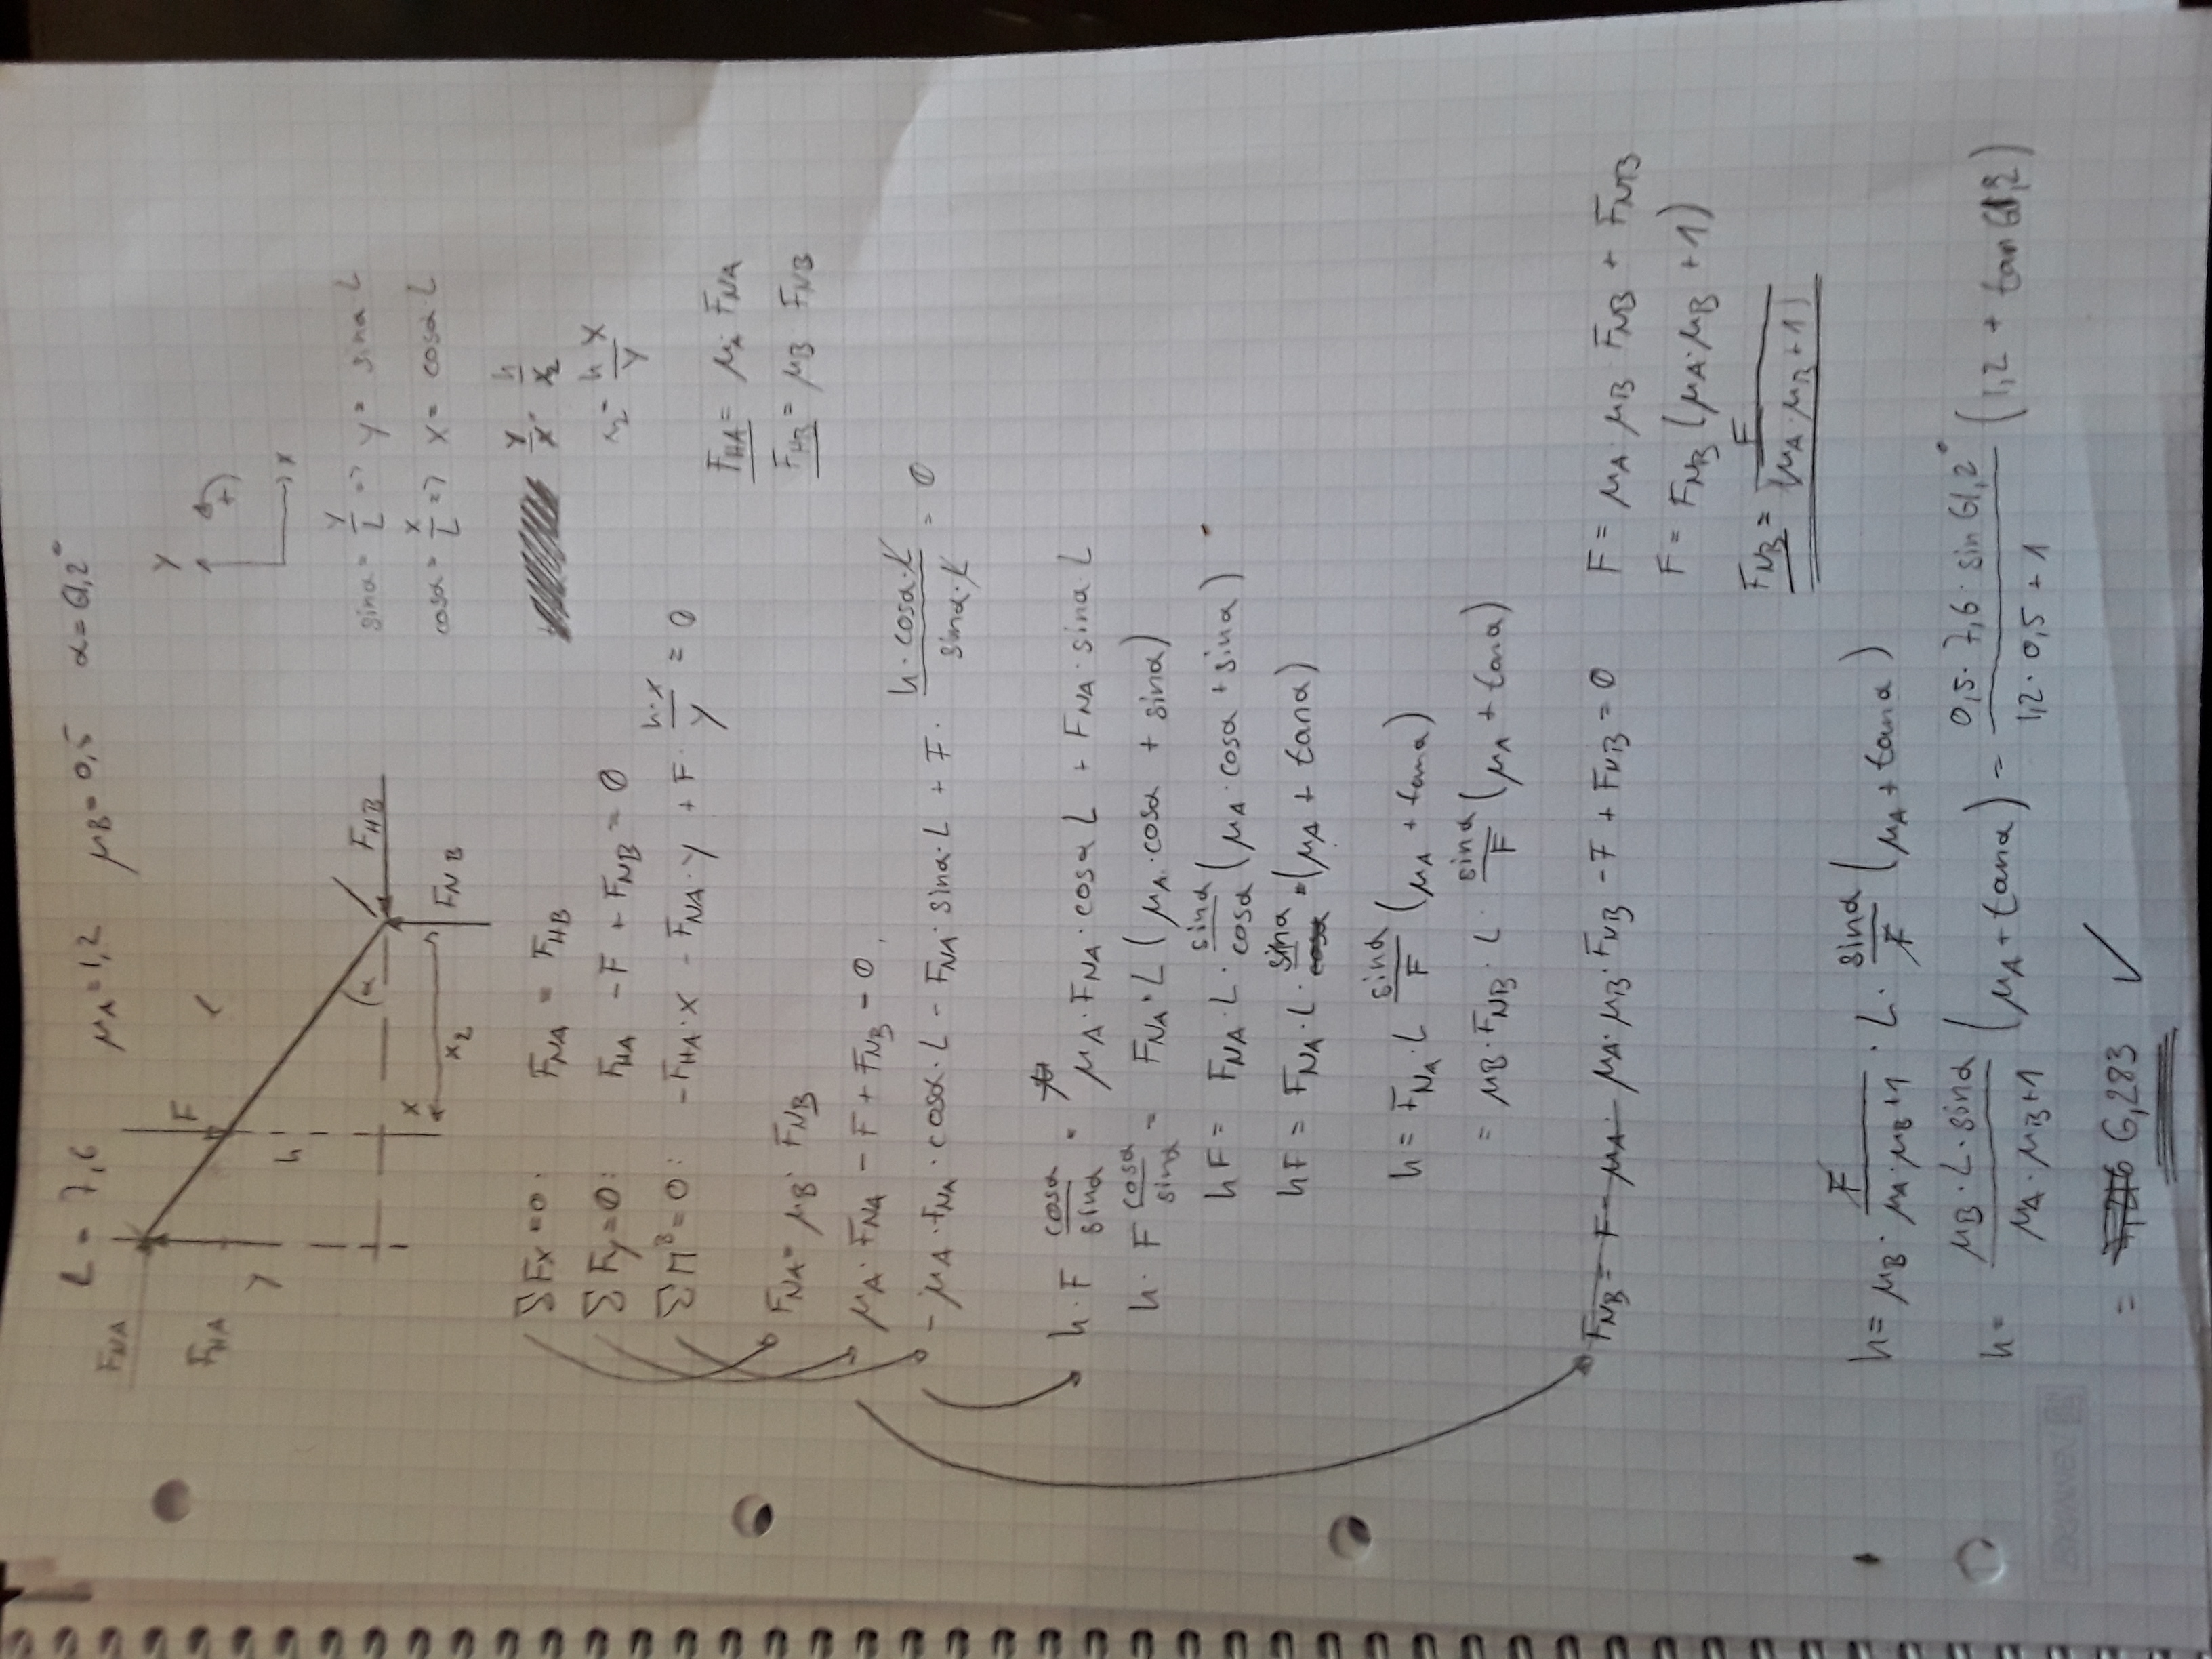 L = 7,6 μA = 1,2 μB = 0,5 α = 61,2°
FNA
FHA
F
h
y
α
FHB
FNB
x
x2
y
x
+
sinα = y/L => y = sinα L
cosα = x/L => x = cosα · L
y/x = h/x2
x2 = h x/y
ΣFx = 0: FNA = FHB
ΣFy = 0: FHA - F + FNB = 0
ΣM^B = 0: -FHA · x - FNA · y + F · h·x/y = 0
FHA = μA FNA
FHB = μB · FNB
FNA = μB · FNB
μA · FNA - F + FNB = 0
-μA · FNA · cosα · L - FNA · sinα · L + F · h · cosα · L / sinα · L = 0
h · F cosα/sinα = μA · FNA · cosα L + FNA · sinα L
h · F cosα/sinα = FNA · L (μA · cosα + sinα)
hF = FNA · L · sinα/cosα (μA · cosα + sinα)
hF = FNA · L · sinα (μA + tanα)
h = FNA · L sinα/F (μA + tanα)
= μB · FNB · L · sinα/F (μA + tanα)
FNB = F - μA · μA · μB · FNB - F + FNB = 0
F = μA · μB · FNB + FNB
F = FNB (μA · μB + 1)
FNB = F/(μA · μB + 1)
h = μB · F/μA · μB + 1 · L · sinα/F (μA + tanα)
h = μB · L · sinα/μA · μB + 1 (μA + tanα) = 0,5 · 7,6 · sin 61,2°/1,2 · 0,5 + 1 (1,2 + tan 61,2)
= 6,283 ✓